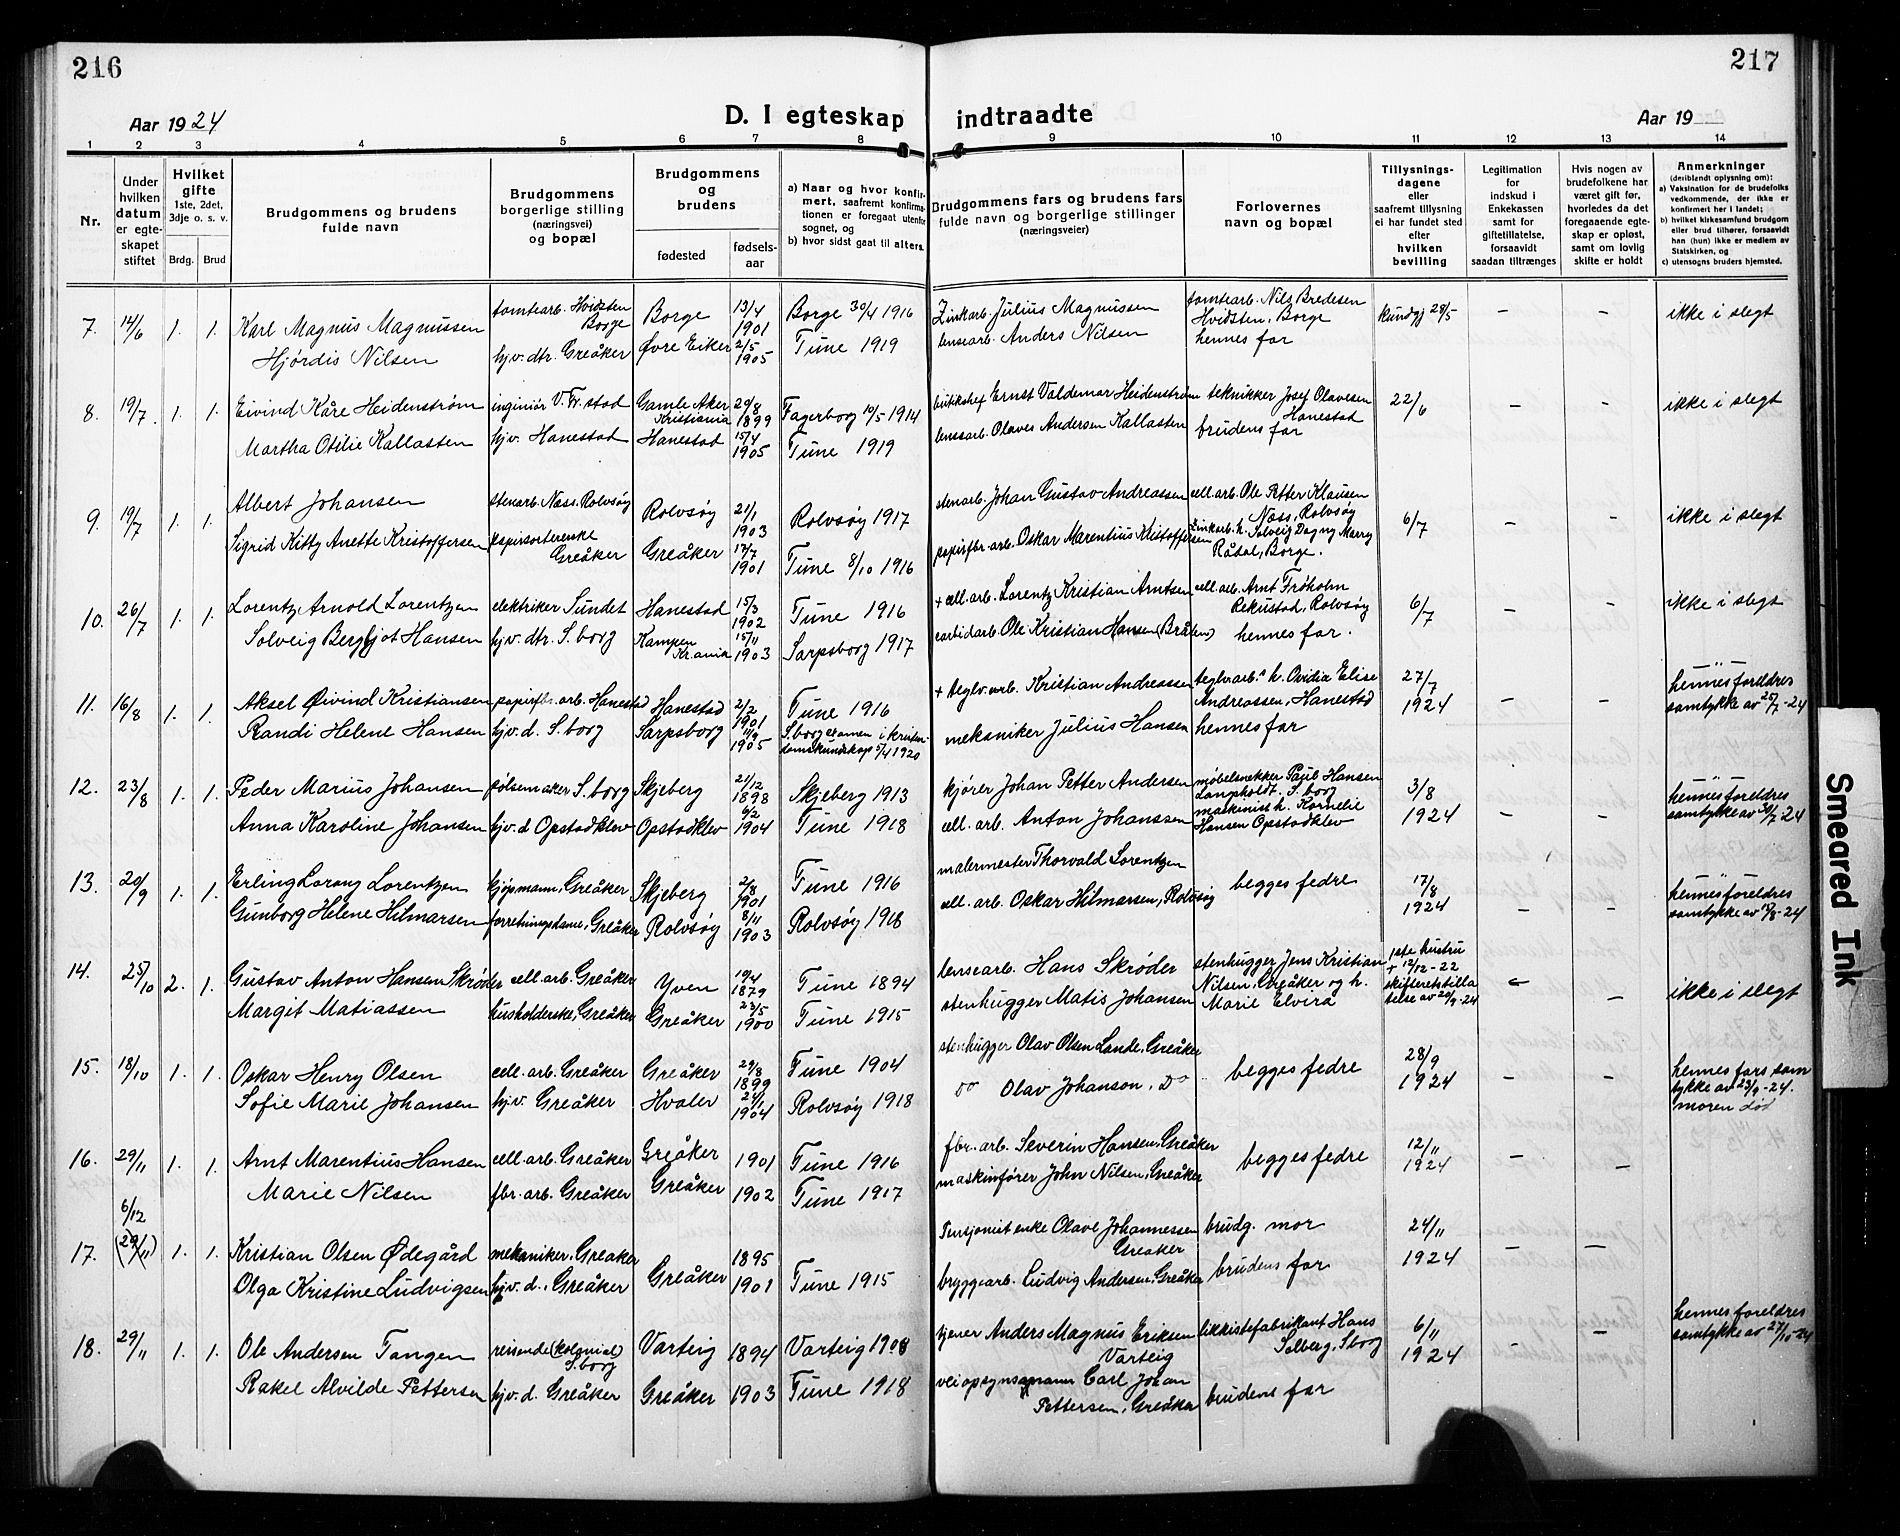 216
217
D. I egteskap indtraadte
Aar 1924
Aar 19
1 2 3 4 5 6 7 8 9 10 11 12 13 14
Nr.
Under hvilken datum er egteskapet stiftet
Hvilket gifte 1ste, 2det, 3dje o. s. v.
Brdg. Brud
Brudgommens og brudens fulde navn
Brudgommens borgerlige stilling (næringsvei) og bopæl
Brudgommens og brudens
fødested
fødselsaar
a) Naar og hvor konfirmert, saafremt konfirmationen er foregaat utenfor sognet, og
b) hvor sidst gaat til alters.
Brudgommens fars og brudens fars fulde navn og borgerlige stillinger (næringsveier)
Forlovernes navn og bopæl
Tillysningsdagene eller saafremt tillysning ei har fundet sted efter hvilken bevilling
Legitimation for indskud i Enkekassen samt for giftetillatelse, forsaavidt saadan tiltrænges
Hvis nogen av brudefolkene har været gift før, hvorledes da det foregaaende egteskap er opløst, samt om lovlig skifte er holdt
Anmerkninger
(deriblandt oplysning om):
a) Vaksination for de brudefolks vedkommende, der ikke er konfirmert her i landet;
b) hvilket kirkesamfund brudgom eller brud tilhører, forsaavidt han (hun) ikke er medlem av Statskirken, og
c) utensogns bruders hjemsted.
7. 14/6 1. 1. Karl Magnus Magnussen tomtearb. Hvidsten Borge Borge 13/4 1901 Borge 30/4 1916 Zinkarb. Julius Magnussen tomtearb. Nils Bredesen Hvidsten, Borge kundgj 28/5 – – ikke i slegt
Hjørdis Nilsen hj.v. dtr. Greåker Øvre Eiker 2/5 1905 Tune 1919 lensearb. Anders Nilsen hennes far
8. 19/7 1. 1. Eivind Kåre Heidenstrøm ingeniør V. Fr.stad Gamle Aker Kristiania 29/8 1899 Fagerborg 10/5 1914 butikchef Ernst Valdemar Heidenstrøm teknikker Josef Olavesen Hanestad 22/6 – – ikke i slegt
Martha Otilie Kallasten hj.v. Hanestad Hanestad 15/4 1905 Tune 1919 lensearb. Olaves Andersen Kallasten brudens far
9. 19/7 1. 1. Albert Johansen stenarb. Næss, Rolvsøy Rolvsøy 21/1 1903 Rolvsøy 1917 stenarb. Johan Gustav Andreassen cell.arb. Ole Petter Klausen Næss, Rolvsøy 6/7 – – ikke i slegt
Sigrid Kitty Anette Kristoffersen papirsorterenske Greåker Greåker 12/7 1901 Tune 8/10 1916 papirfbr.arb. Oskar Marentius Kristoffersen Zinkarb. h. Solveig Dagny Marry Rådal, Borge.
10. 26/7 1. 1. Lorentz Arnold Lorentzen elektriker Sundet Hanestad 15/3 1902 Tune 1916 + cell.arb. Lorentz Kristian Arntsen cell.arb. Arnt Frøholm Rekustad, Rolvsøy 6/7 – – ikke i slegt
Solveig Bergljot Hansen hj.v. dtr. S.borg Kampen Kr.ania 15/11 1903 Sarpsborg 1917 karbidarb. Ole Kristian Hansen (Bråten) hennes far.
11. 16/8 1. 1. Aksel Øivind Kristiansen papirfbr.arb. Hanestad Hanestad 2/2 1901 Tune 1916 + teglv.arb. Kristian Andreassen teglv.arb.s h. Ovidia Elise Andreassen, Hanestad 27/7 1924 – – hennes foreldres samtykke av 25/7-24
Randi Helene Hansen hj.v.d. S.borg Sarpsborg 1905 S.borg examen i kristendomskundskap 5/4 1920 mekaniker Julius Hansen hennes far
12. 23/8 1. 1. Peder Marius Johansen pølsemaker S.borg Skjeberg 21/12 1898 Skjeberg 1913 kjører Johan Petter Andersen møbelsnekker Paul Hansen Langholdt. S.borg 3/8 1924 – – hennes foreldres samtykke av 30/7-24
Anna Karoline Johansen hj.v.d Opstadklev Opstadklev 6/2 1904 Tune 1918 cell. arb. Anton Johanssen maskinist h. Kornelie Hansen Opstadklev
13. 20/9 1. 1. Erling Lorang Lorentzen kjøpmann, Greåker Skjeberg 2/8 1901 Tune 1916 malermester Thorvald Lorentzen begges fedre 17/8 1924 – – hennes foreldres samtykke av 17/8-24
Gunborg Helene Hilmarsen forretningsdame, Greåker Rolvsøy 8/11 1903 Rolvsøy 1918 cell. arb. Oskar Hilmarsen, Rolvsøy
14. 25/10 2. 1. Gustav Anton Hansen Skrøder cell.arb. Greåker Yven 19/4 1879 Tune 1894 lensearb. Hans Skrøder stenhugger Jens Kristian Nilsen, Greåker og h. Marie Elvira 1ste hustru + 12/12-22 skifterets tilladelse av 29/9-24 – – ikke i slegt
Margit Matiassen husholderske, Greåker Greåker 23/5 1900 Tune 1915 stenhugger Matis Johansen
15. 18/10 1. 1. Oskar Henry Olsen cell.arb. Greåker Greåker 29/8 1899 Tune 1904 stenhugger Olav Olsen Lande, Greåker begges fedre 28/9 1924 – – hennes fars samtykke av 23/9-24. moren død
Sofie Marie Johansen hj.v. Greåker Hvaler 21/1 1904 Rolvsøy 1918 do Olav Johanson. Do
16. 29/11 1. 1. Arnt Marentius Hansen cell.arb. Greåker Greåker 1901 Tune 1916 fbr.arb. Severin Hansen, Greåker begges fedre 12/11 1924 – –
Marie Nilsen fbr.arb. Greåker Greåker 1902 Tune 1917 maskinfører John Nilsen, Greåker
17. 6/12 (29/11) 1. 1. Kristian Olsen Ødegård mekaniker, Greaker Greåker 1895 Pensjonist enke Olave Johannessen Greaker brudg. mor 24/11 1924 – –
Olga Kristine Ludvigsen hj.v.d., Greåker 1901 Tune 1915 bryggearb. Ludvig Andersen, Greåker brudens far
18. 29/11 1. 1. Ole Andersen Tangen reisende (kolonial) S.borg Varteig 1894 Varteig 1908 tjener Anders Magnus Eriksen Varteig likkistefabrikant Hans Solberg, Sborg 6/11 1924 – – hennes foreldres samtykke av 27/10-24
Rakel Alvilde Pettersen hj.v.d. Greåker Greåker 1903 Tune 1918 veiopsynsmann Carl Johan Pettersen, Greåker brudens far
Smeared Ink